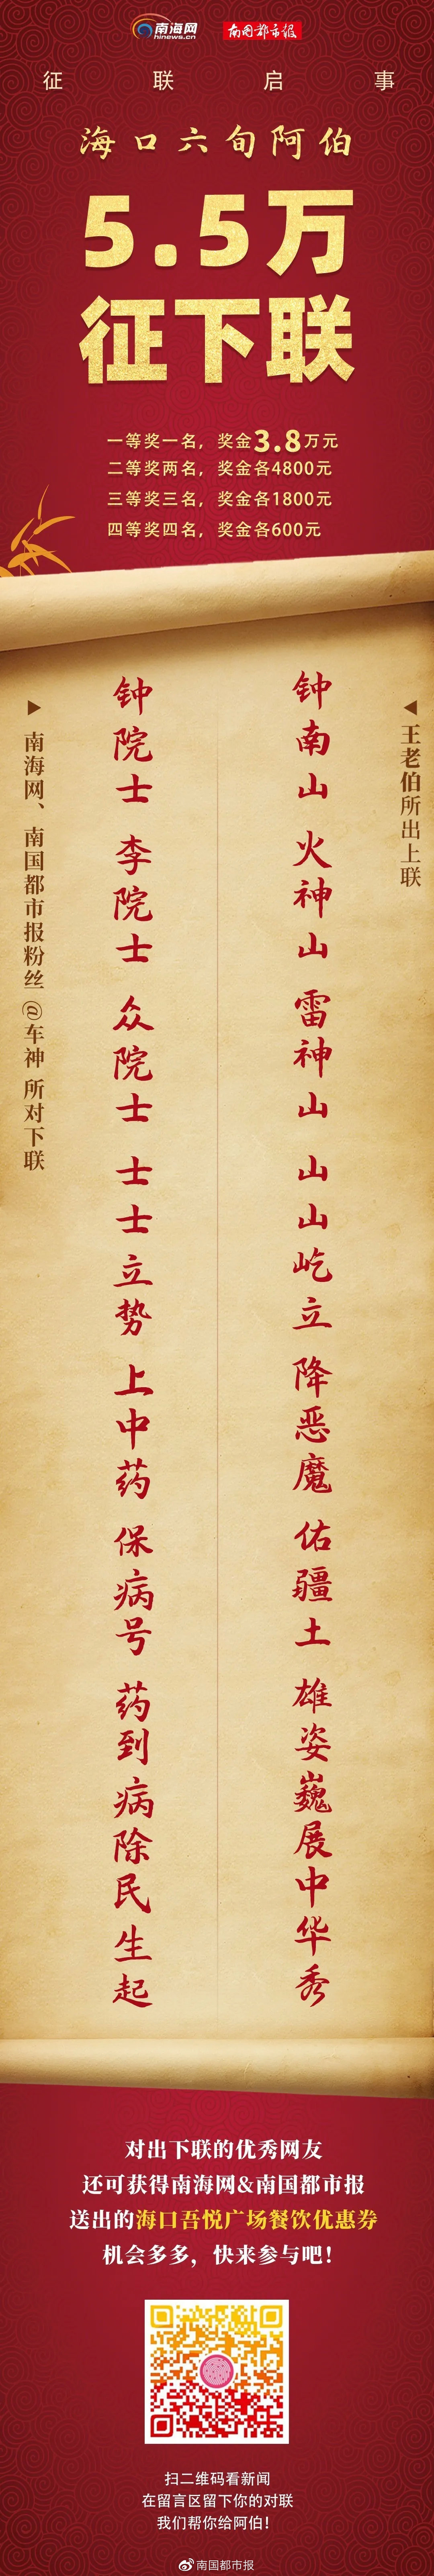 南海网
hinews.cn
南国都市报
征联启事
海口六旬阿伯
5.5万
征下联
一等奖一名，奖金3.8万元
二等奖两名，奖金各4800元
三等奖三名，奖金各1800元
四等奖四名，奖金各600元
王老伯所出上联
钟南山 火神山 雷神山 山山屹立 降恶魔 佑疆土 雄姿巍展中华秀
钟院士 李院士 众院士 士士立势 上中药 保病号 药到病除民生起
南海网、南国都市报粉丝@车神 所对下联
对出下联的优秀网友
还可获得南海网&南国都市报
送出的海口吾悦广场餐饮优惠券
机会多多，快来参与吧！
扫二维码看新闻
在留言区留下你的对联
我们帮你给阿伯！
南国都市报